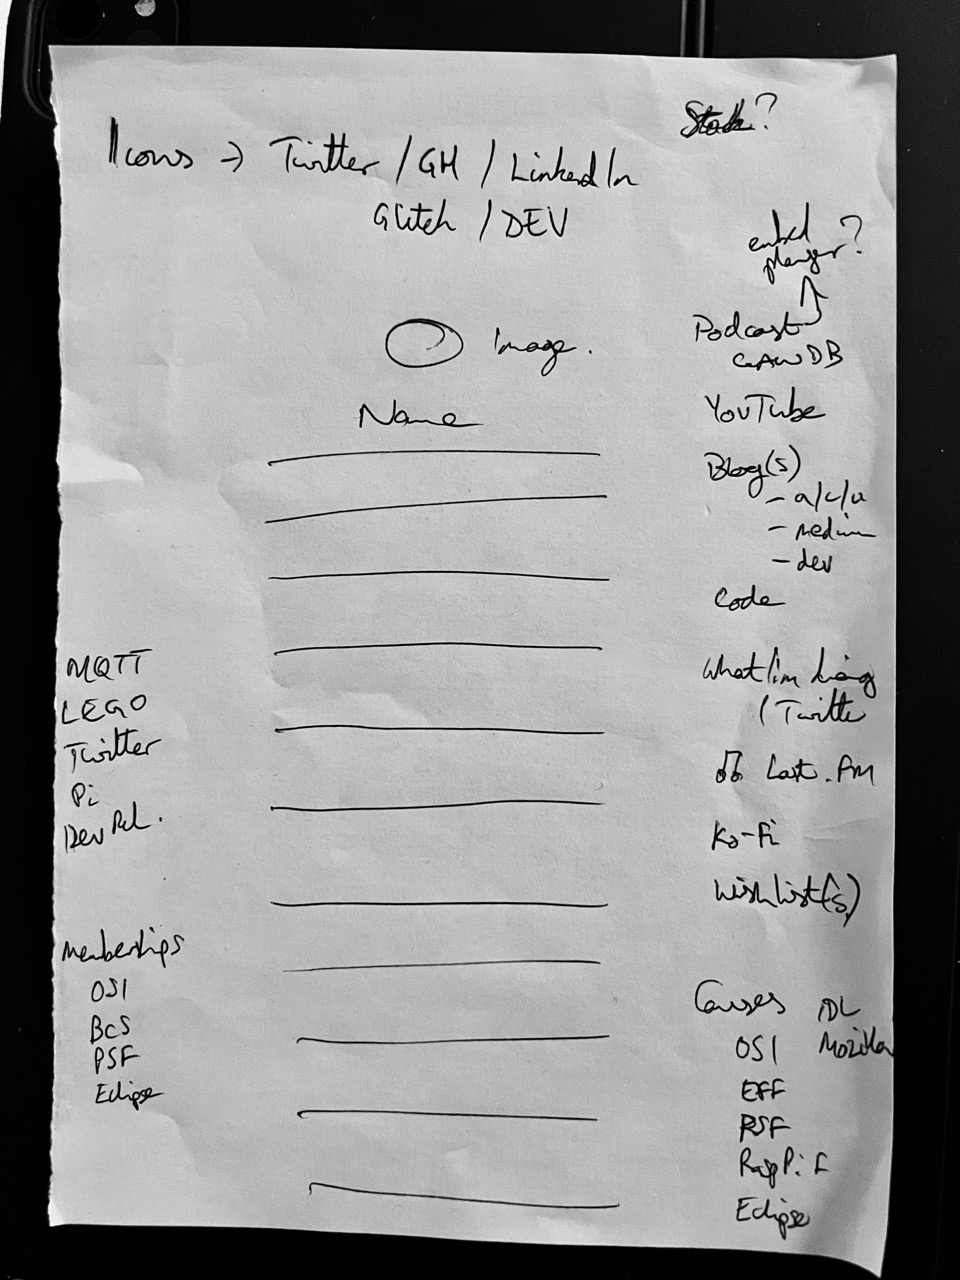 Icons → Twitter / GH / LinkedIn
Glitch / DEV
Image.
Name
MQTT
LEGO
Twitter
Pi
DevRel.
Memberships
OSI
BCS
PSF
Eclipse
?
embed
player?
Podcast
GAWDB
YouTube
Blog(s)
- a/c/u
- medium
- dev
Code
What I'm doing
/ Twitter
♫ Last.FM
Ko-Fi
Wishlist(s)
Causes
OSI
EFF
PSF
RaspPi F
Eclipse
Mozilla